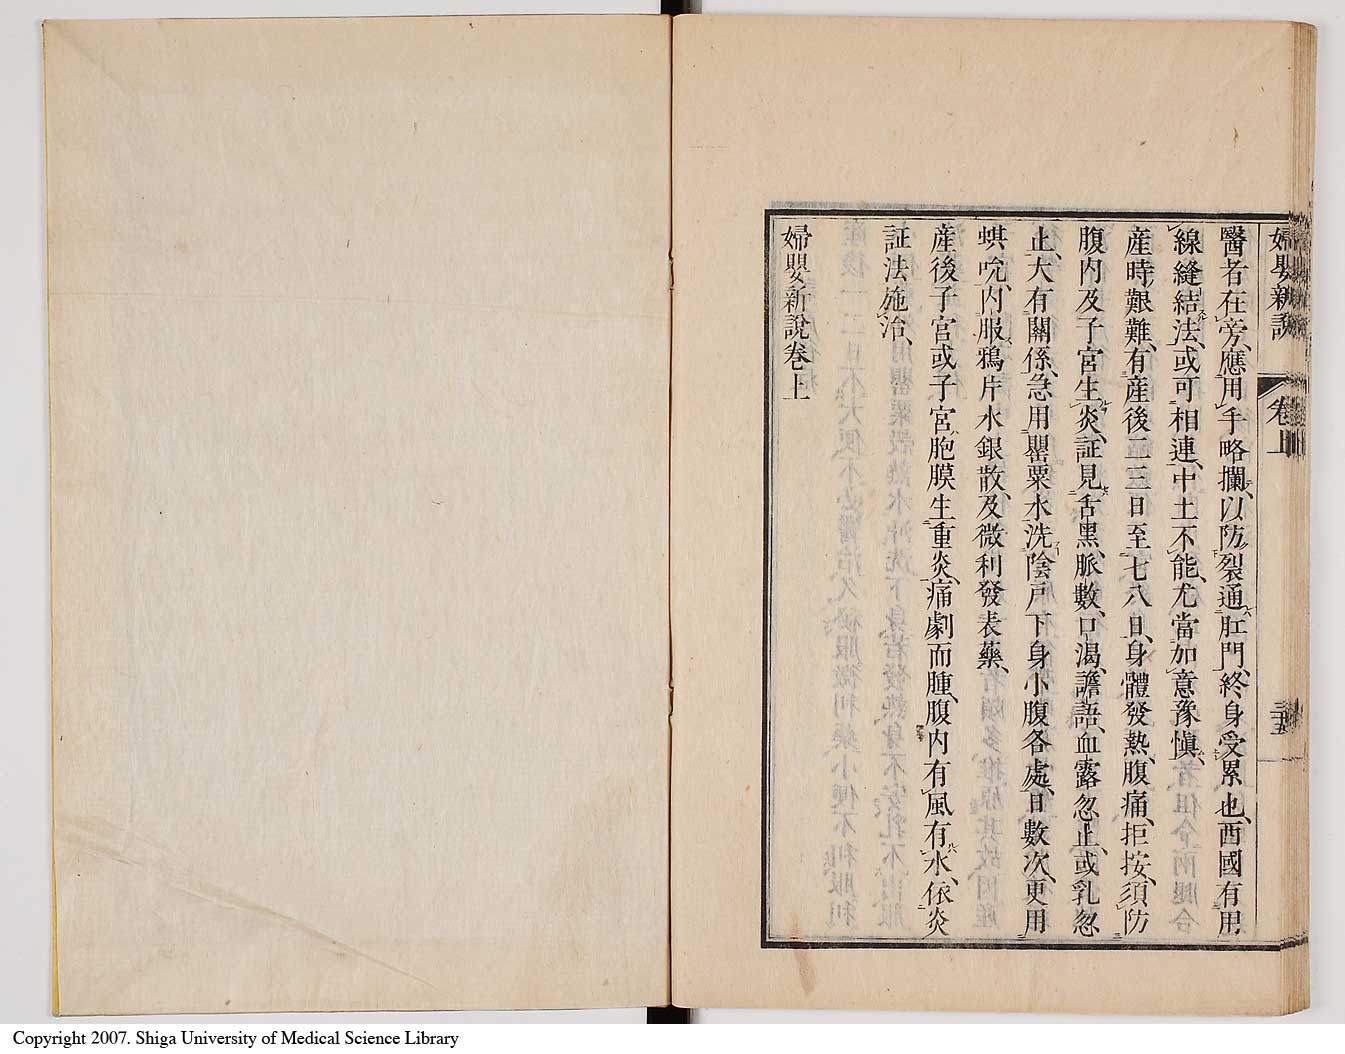 婦嬰新說 卷上 三十五
醫者在旁、應用手略攔、以防裂通肛門、終身受累也、西國有用
線縫結法、或可相連、中土不能、尤當加意豫愼、
產時艱難、有產後二三日至七八日、身體發熱、腹痛、拒按、須防
腹內及子宮生炎、証見舌黑、脈數、口渴、譫語、血露忽止、或乳忽
止、大有關係、急用罌粟水洗陰戶下身小腹各處、日數次、更用
蜞吮、內服鴉片水銀散、及微利發表藥、
產後子宮或子宮胞膜生重炎、痛劇而腫、腹內有風有水、依炎
証法施治、
婦嬰新說卷上
Copyright 2007. Shiga University of Medical Science Library